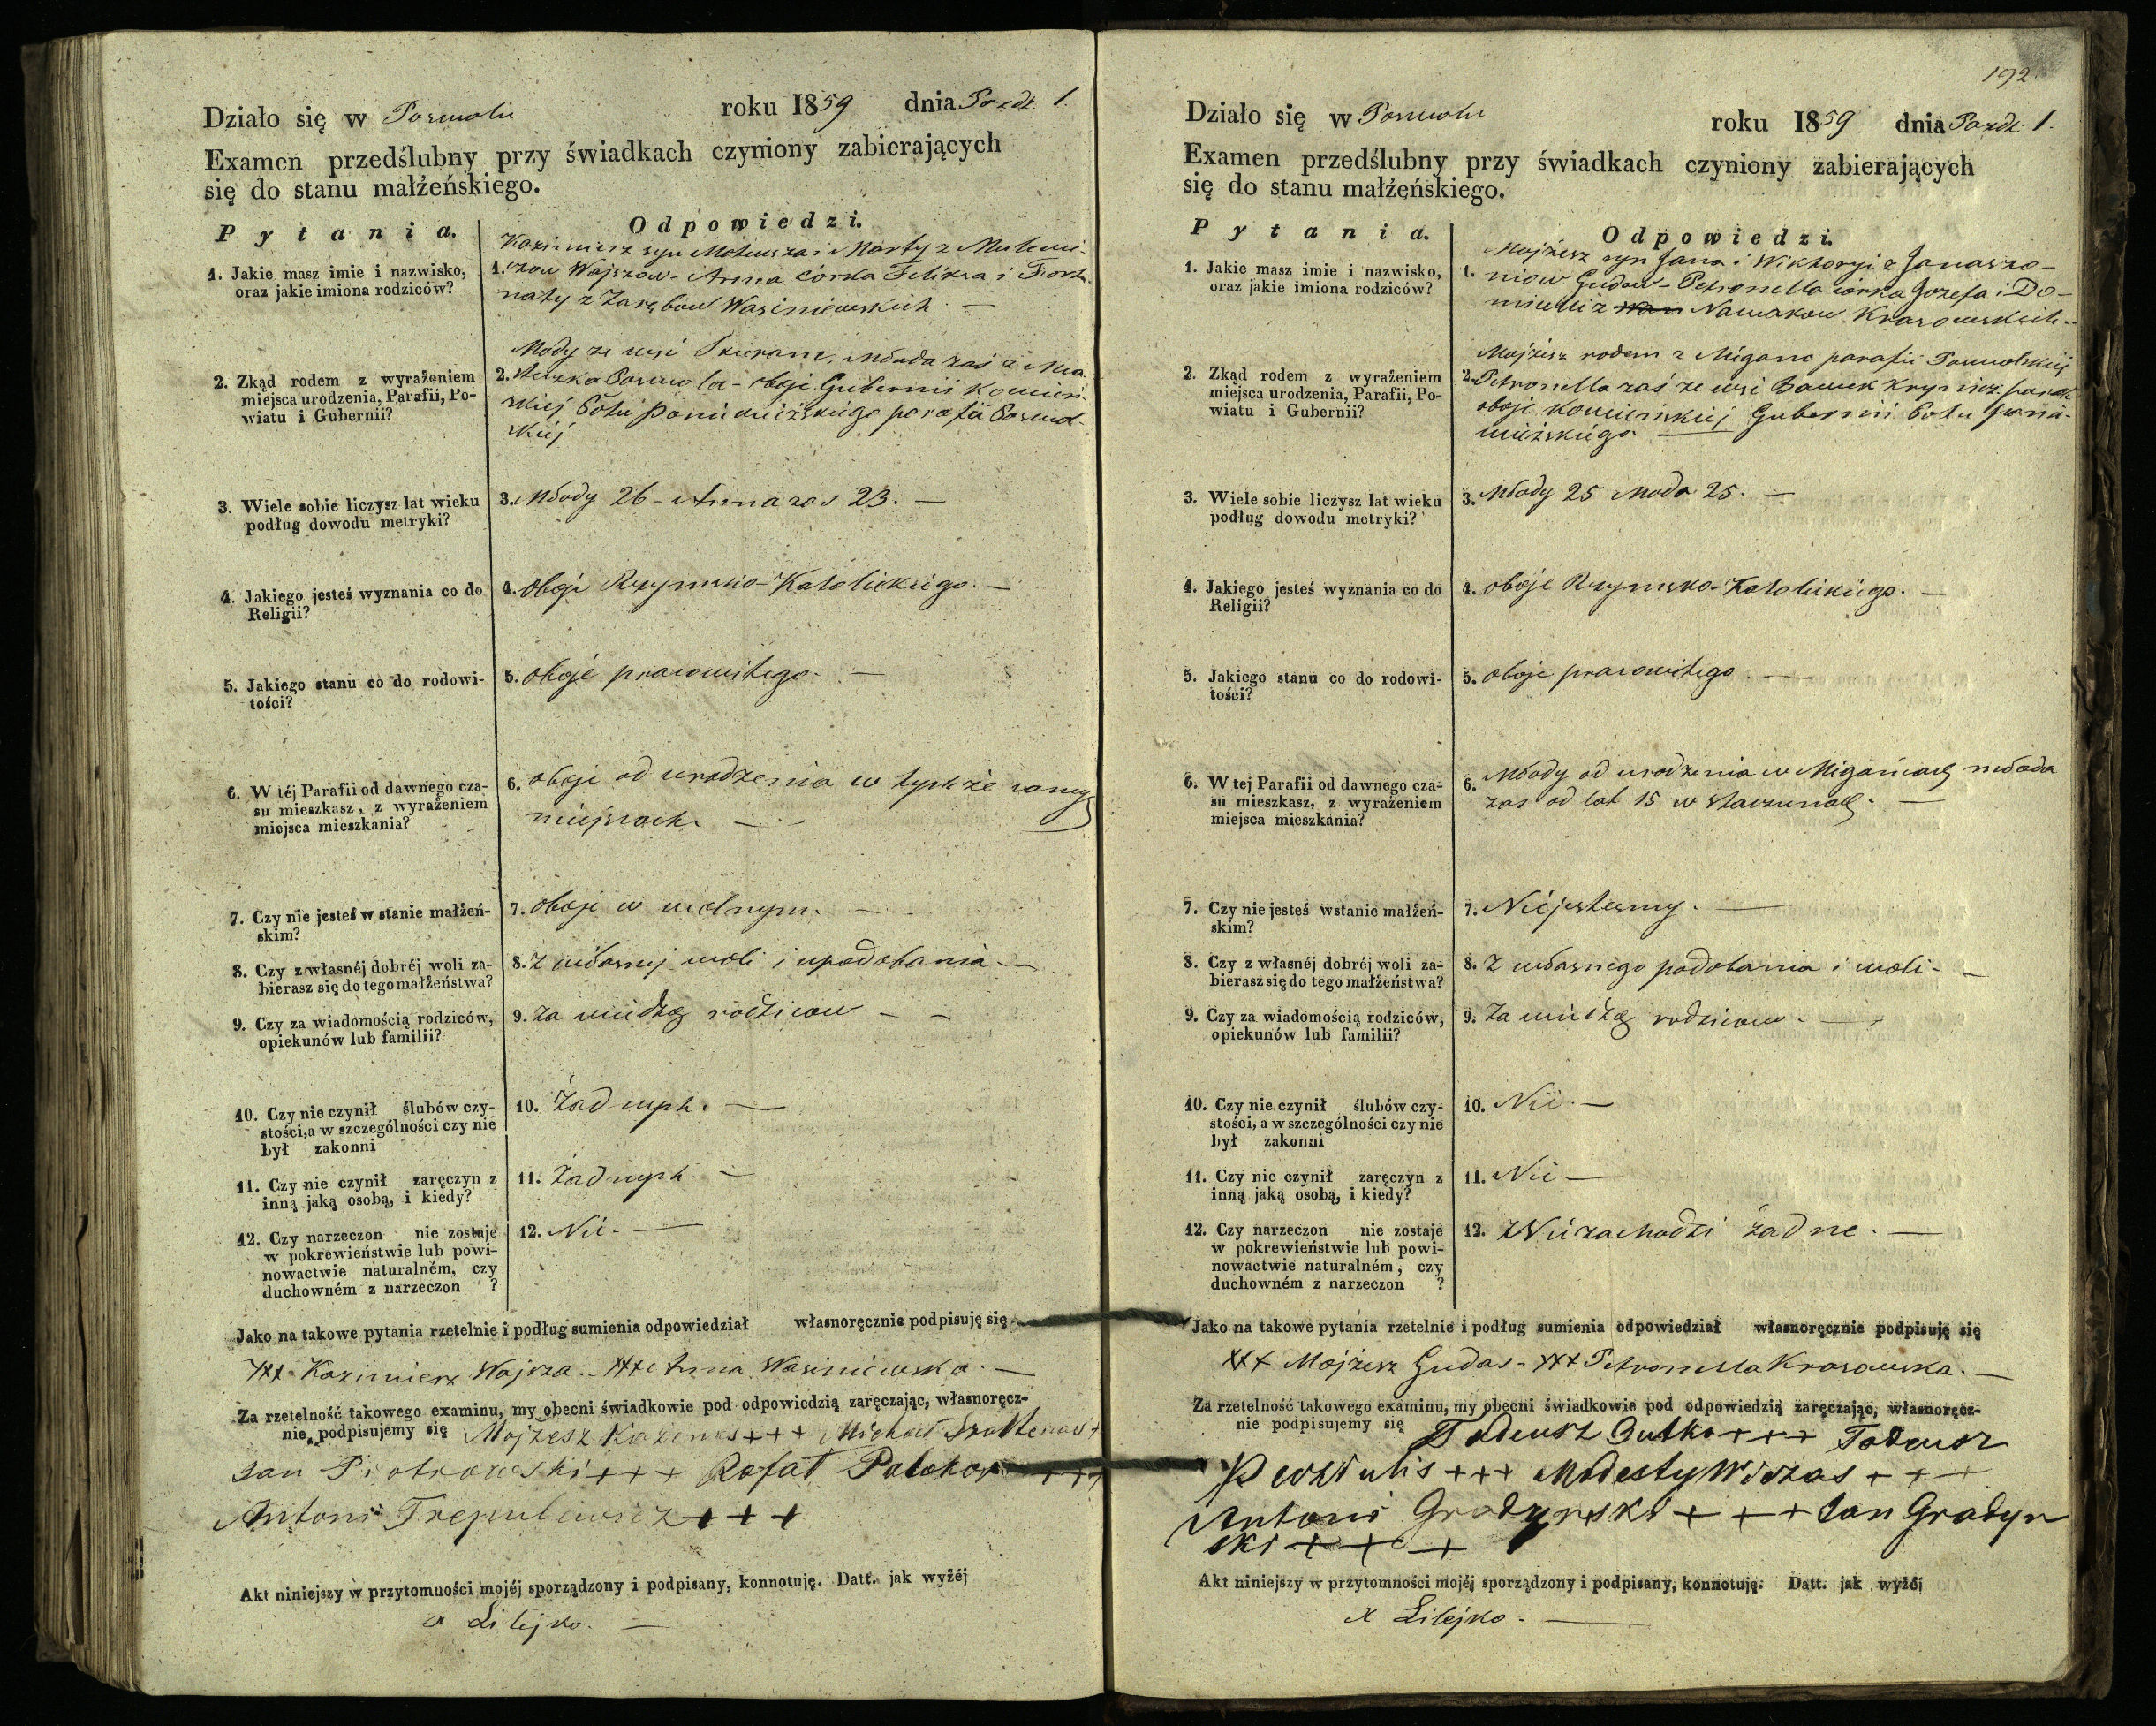 Działo się w Poswolu roku 1859 dnia Pazdz. 1.
Examen przedślubny przy świadkach czyniony zabierających
się do stanu małżeńskiego.
Pytania. Odpowiedzi.
1. Jakie masz imie i nazwisko,
oraz jakie imiona rodziców?
Kazimierz syn Mateusza i Marty z
1. Wajszow - Anna córka Felixa i
naty z Zarębow Wasiniewskich. —
2. Zkąd rodem z wyrażeniem
miejsca urodzenia, Parafii, Po-
wiatu i Gubernii?
Młody ze wsi młoda zaś z Mia
2. steczka Poswola - oboje Gubernii Kowień
skiej Pottu Poniewiezskiego parafii Poswol-
skiej
3. Wiele sobie liczysz lat wieku
podług dowodu metryki?
3. Młody 26 - Anna zas 23. —
4. Jakiego jesteś wyznania co do
Religii?
4. oboje Rzymsko-Katolickiego. —
5. Jakiego stanu co do rodowi-
tości?
5. oboje pracowitego. —
6. W téj Parafii od dawnego cza-
su mieszkasz, z wyrażeniem
miejsca mieszkania?
6. oboje od urodzenia w tychże samych
miejscach. —
7. Czy nie jesteś w stanie małżeń-
skim?
7. oboje w wolnym. —
8. Czy z własnéj dobréj woli za-
bierasz się do tego małżeństwa?
8. Z własnej woli i upodobania —
9. Czy za wiadomością rodziców,
opiekunów lub familii?
9. Za wiedzą rodzicow — —
10. Czy nie czynił ślubów czy-
stości, a w szczególności czy nie
był zakonni
10. Żadnych. —
11. Czy nie czynił zaręczyn z
inną jaką osobą, i kiedy?
11. Żadnych. —
12. Czy narzeczon nie zostaje
w pokrewieństwie lub powi-
nowactwie naturalném, czy
duchowném z narzeczon ?
12. Nie. —
Jako na takowe pytania rzetelnie i podług sumienia odpowiedział własnoręcznie podpisuję się
+++ Kazimierz Wajsza. - +++ Anna Wasiniewska. —
Za rzetelność takowego examinu, my obecni świadkowie pod odpowiedzią zaręczając, własnoręcz-
nie podpisujemy się Mojżesz +++ Michał
Jan Piotrowski +++ Rafał +++
Antoni Trepulewicz +++
Akt niniejszy w przytomności mojéj sporządzony i podpisany, konnotuję. Datt. jak wyżéj
X Lilejko. —
192.
Działo się w Poswolu roku 1859 dnia Pazdz. 1.
Examen przedślubny przy świadkach czyniony zabierających
się do stanu małżeńskiego.
Pytania. Odpowiedzi.
1. Jakie masz imie i nazwisko,
oraz jakie imiona rodziców?
Mojżesz syn Jana i Wiktoryi z Janaszo-
1. niow Gudow - Petronella córka Jozefa i Do-
miceli z Nawakow Krasowskich. -
2. Zkąd rodem z wyrażeniem
miejsca urodzenia, Parafii, Po-
wiatu i Gubernii?
Mojżesz rodem z Migano parafii Poswolskiej
2. Petronella zaś ze wsi
oboje Kowieńskiej Gubernii Pottu Ponie-
wiezskiego —
3. Wiele sobie liczysz lat wieku
podług dowodu metryki?
3. Młody 25 Młoda 25. —
4. Jakiego jesteś wyznania co do
Religii?
4. oboje Rzymsko-Katolickiego. —
5. Jakiego stanu co do rodowi-
tości?
5. oboje pracowitego —
6. W tej Parafii od dawnego cza-
su mieszkasz, z wyrażeniem
miejsca mieszkania?
6. Młody od urodzenia w Miganach młoda
zas od lat 15 w —
7. Czy nie jesteś wstanie małżeń-
skim?
7. Niejestesmy. —
8. Czy z własnéj dobréj woli za-
bierasz się do tego małżeństwa?
8. Z własnego podobania i woli. —
9. Czy za wiadomością rodziców,
opiekunów lub familii?
9. Za wiedzą rodzicow. —
10. Czy nie czynił ślubów czy-
stości, a w szczególności czy nie
był zakonni
10. Nie —
11. Czy nie czynił zaręczyn z
inną jaką osobą, i kiedy?
11. Nie —
12. Czy narzeczon nie zostaje
w pokrewieństwie lub powi-
nowactwie naturalném, czy
duchowném z narzeczon ?
12. Niezachodzi żadne. —
Jako na takowe pytania rzetelnie i podług sumienia odpowiedział własnoręcznie podpisuję się
+++ Mojżesz Gudas - +++ Petronella Krasowska. —
Za rzetelność takowego examinu, my obecni świadkowie pod odpowiedzią zaręczając, własnoręcz-
nie podpisujemy się Tadeusz Butko +++ Tadeusz
+++ Modesty Wiczas +++
Antoni Gradynski +++ Jan Gradyn
ski +++
Akt niniejszy w przytomności mojéj sporządzony i podpisany, konnotuję. Datt. jak wyżéj
X Lilejko. —